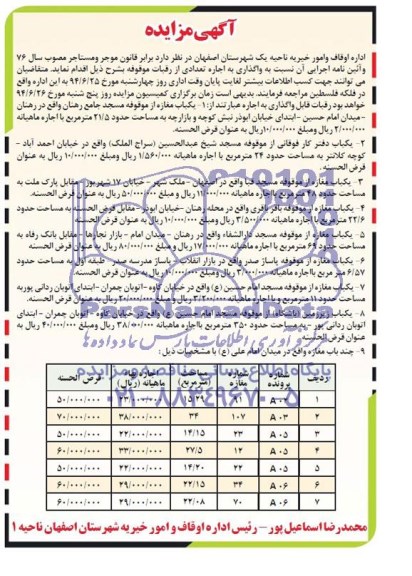 آگهی مزایده
اداره اوقاف وامور خیریه ناحیه یک شهرستان اصفهان در نظر دارد برابر قانون موجر ومستاجر مصوب سال ۷۶
وآئین نامه اجرایی آن نسبت به واگذاری به اجاره تعدادی از رقبات موقوفه بشرح ذیل اقدام نماید. متقاضیان
می توانند جهت کسب اطلاعات بیشتر لغایت پایان وقت اداری روز چهارشنبه مورخ ۹۴/۶/۲۵ به این اداره واقع
در فلکه فلسطین مراجعه فرمایند. بدیهی است زمان برگزاری کمیسیون مزایده روز پنج شنبه مورخ ۹۴/۶/۲۶
خواهد بود رقبات قابل واگذاری به اجاره عبارتند از: ۱- یکباب مغازه از موقوفه مسجد جامع رهنان واقع در رهنان
-میدان امام حسین -ابتدای خیابان ابوذر نبش کوچه و بازارچه به مساحت حدود ۲۱/۵ مترمربع با اجاره ماهیانه
۲/۰۰۰/۰۰۰ ریال ومبلغ ریال به عنوان قرض الحسنه.
۲- یکباب دفتر کار فوقانی از موقوفه مسجد شیخ عبدالحسین (سراج الملک) واقع در خیابان احمد آباد -
کوچه کلانتر به مساحت حدود ۲۴ مترمربع با اجاره ماهیانه ۱/۵۶۰/۰۰۰ ریال ومبلغ ۱۰/۰۰۰/۰۰۰ ریال به عنوان
قرض الحسنه.
۳- یکباب مغازه از موقوفه مسجد قبا واقع در اصفهان -ملک شهر - خیابان ۱۷ شهریور - مقابل پارک ملت به
مساحت حدود ۴۸ مترمربع با اجاره ماهیانه ۱۱/۰۰۰/۰۰۰ ریال ومبلغ ریال به عنوان قرض الحسنه
۴- یکباب مغازه از موقوفه باقر واقع در محله رهنان -خیابان ابوذر -مقابل قرض الحسنه به مساحت حدود
۲۲/۶ مترمربع با اجاره ماهیانه ۳/۵۰۰/۰۰۰ ریال ومبلغ ریال به عنوان قرض الحسنه
۵- یکباب مغازه از موقوفه مسجد دارالشفاء واقع در رهنان - میدان امام - بازار نجارها - مقابل بانک رفاه به
مساحت حدود ۶۹ مترمربع با اجاره ماهیانه ریال ومبلغ ۸۰/۰۰۰/۰۰۰ ریال به عنوان قرض الحسنه
۶- یکباب مغازه از موقوفه پاساژ صدر واقع در بازار انقلاب - پاساژ مدرسه صدر - طبقه اول به مساحت حدود
۶/۵۷ مترمربع با اجاره ماهیانه ریال ومبلغ ریال به عنوان قرض الحسنه.
۷- یکباب مغازه از موقوفه مسجد امام حسین (ع) واقع در خیابان کاوه -اتوبان چمران -ابتدای اتوبان ردانی پور به
مساحت حدود ۱۱ مترمربع با اجاره ماهیانه ۳/۲۰۰/۰۰۰ ریال ومبلغ ۲۰/۰۰۰/۰۰۰ ریال به عنوان قرض الحسنه
۸- یکباب زیرزمین (باشگاه) از موقوفه مسجد امام حسین (ع) واقع در خیابان کاوه -اتوبان چمران -ابتدای
اتوبان ردانی پور - به مساحت حدود ۳۵۰ مترمربع با اجاره ماهیانه ریال ومبلغ ۴۰/۰۰۰/۰۰۰ ریال به
عنوان قرض الحسنه
۹- چند باب مغازه واقع در میدان امام علی (ع) با مشخصات ذیل :
ردیف شماره پرونده شماره مغازه مساحت (مترمربع) ماهیانه (ریال) قرض الحسنه
۱ A۰۵ ۱۵/۲۹ ۵۰/۰۰۰/۰۰۰
۲ A۰۳ ۱۰۷ ۳۴ ۳۸/۰۰۰/۰۰۰ ۷۰/۰۰۰/۰۰۰
۳ A۰۵ ۲۳ ۱۴/۱۵ ۲۲/۰۰۰/۰۰۰ ۵۰/۰۰۰/۰۰۰
۴ A۰۵ ۱۲ ۲۷/۵ ۳۳/۰۰۰/۰۰۰ ۶۰/۰۰۰/۰۰۰
۵ A۰۵ ۲۲ ۱۴/۲۰ ۲۲/۰۰۰/۰۰۰ ۵۰/۰۰۰/۰۰۰
۶ A۰۶ ۳۴ ۲۲/۱۵ ۲۹/۰۰۰/۰۰۰ ۶۰/۰۰۰/۰۰۰
۷ A۰۶ ۷۰ ۲۲/۰۸ ۲۹/۰۰۰/۰۰۰ ۶۰/۰۰۰/۰۰۰
محمدرضا اسماعیل پور – رئیس اداره اوقاف و امور خیریه شهرستان اصفهان ناحیه ۱